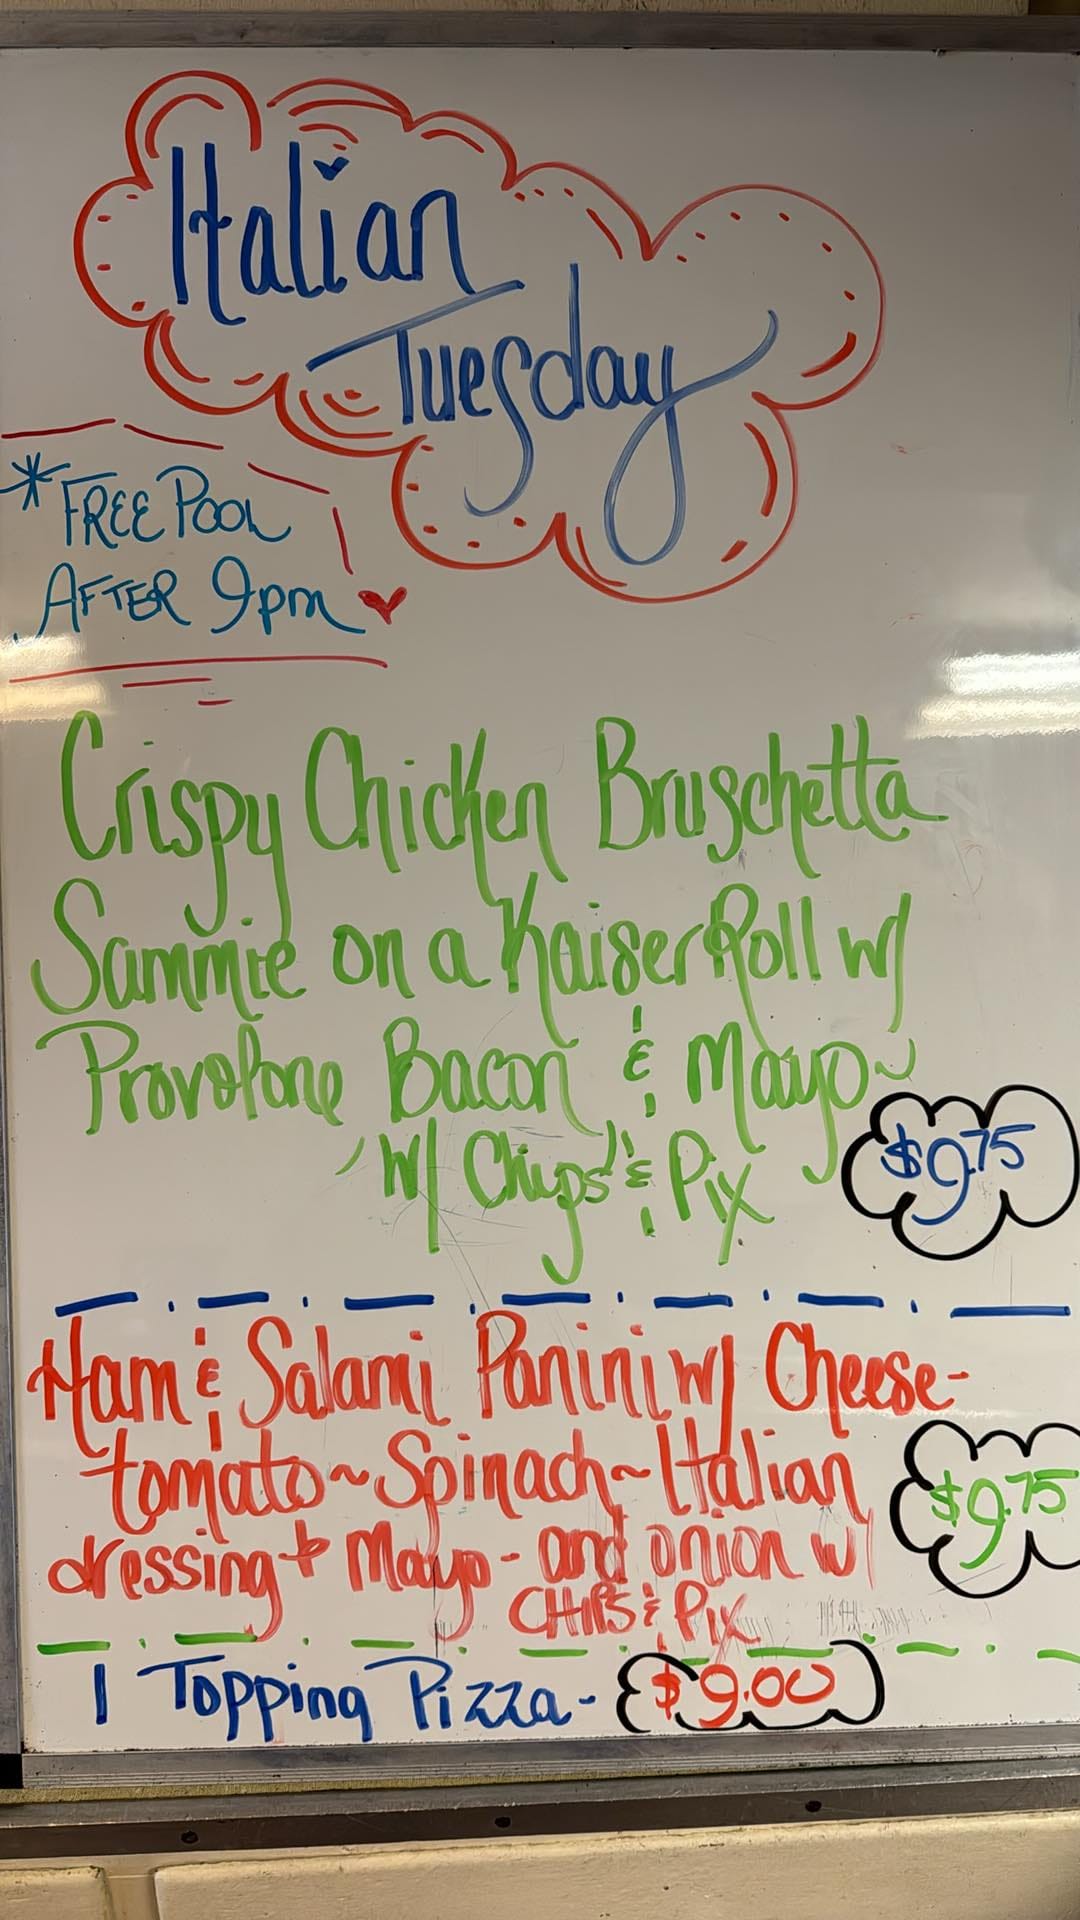 Italian
Tuesday
*FREE POOL
AFTER 9pm
Crispy Chicken Bruschetta
Sammie on a Kaiser Roll w/
Provolone Bacon & Mayo~
w/ Chips & Pix
$9.75
Ham & Salami Panini w/ Cheese-
tomato~Spinach~Italian
dressing + Mayo - and onion w/
CHIPS & Pix
$9.75
1 Topping Pizza - $9.00